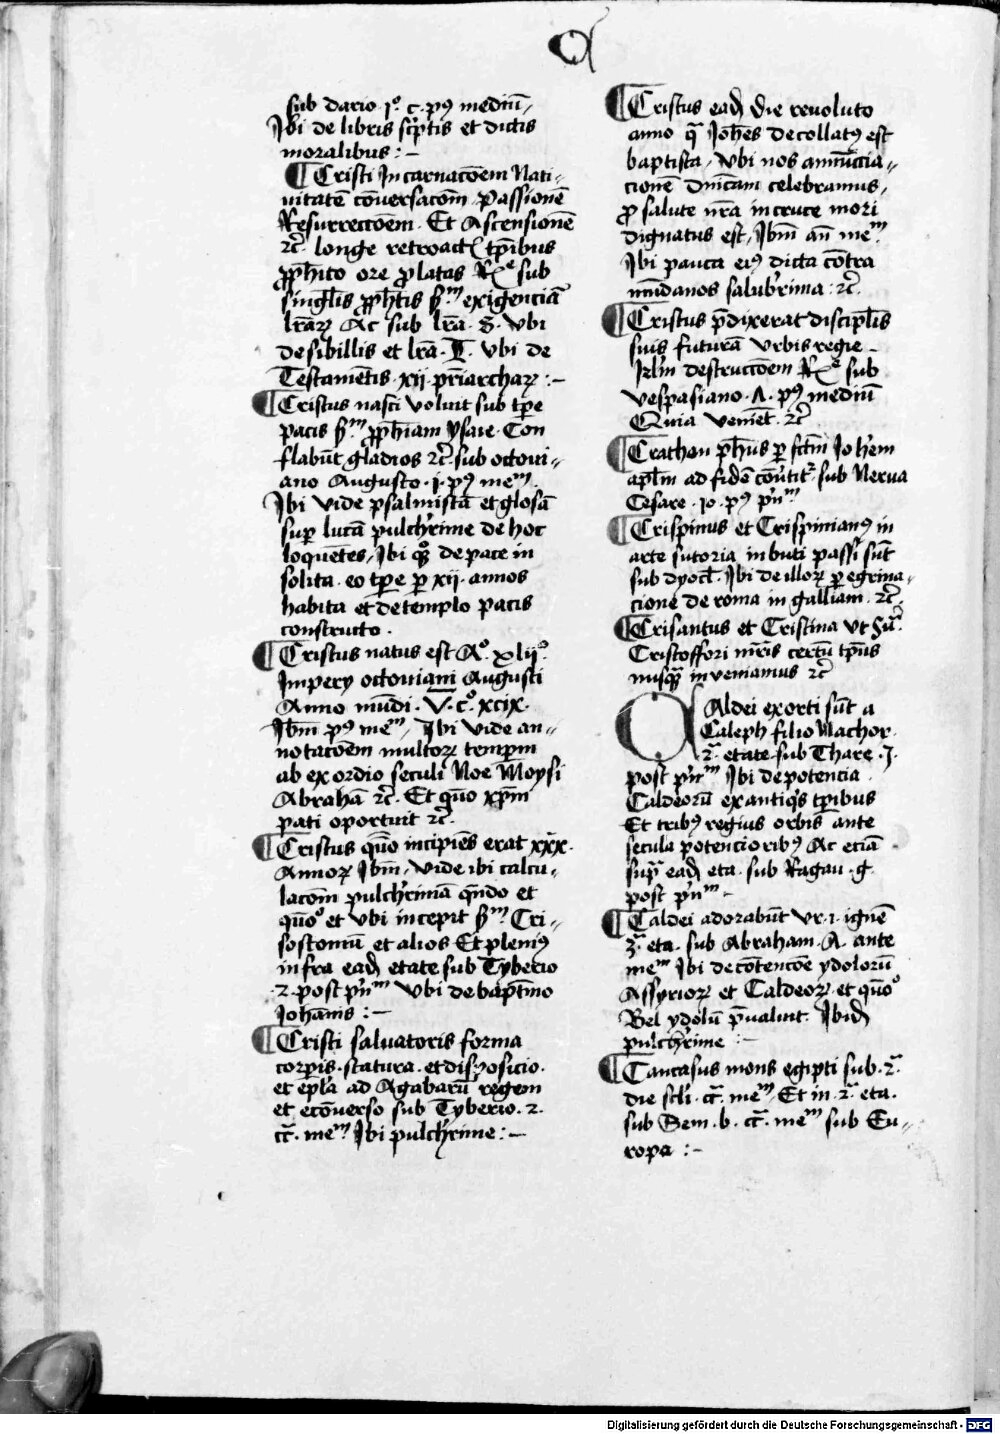 C
sub dario · jº · c · pꝰ mediū,
Ibi de libris sc͛ptis et dictis
moralibus :~
¶ Cristi Incarnacōem Nati-
uitatē cōuersacōm · Passionē
Resurreccōem · Et Ascensionē
⁊c̄ · longe retroact tp̄ibus
ꝓph̄ico ore ꝓlatas sub
singl̄is ꝓph̄tis exigenciā
lr̄aꝝ Ac sub lr̄a · S · Vbi
de sibillis et lr̄a · T · Vbi de
Testamētis · xij · pr̄iarchaꝝ :~
¶ Cristus nasci voluit sub tp̄e
pacis ꝓph̄iam ysaie · Con
flabūt gladios ⁊c̄ · sub octoui-
ano Augusto · j · pꝰ meᵐ ·
Ibi vide psalmistā et glosā
suꝑ lucā pulch͛rime de hoc
loquētes, Ibi de pace in
solita · eo tp̄e ꝑ xij · annos
habita et de templo pacis
constructo ·
¶ Cristus natus est Aº · xlijº ·
Impery octouiani Augusti
Anno mūdi · V · cº · xcix ·
Ibm̄ · pꝰ meᵐ, Ibi vide an-
notacōem multoꝝ tempm̄
ab exordio seculi Noe Moysi
Abrahā ⁊c̄ · Et quō xp̄m
pati oportuit ⁊c̄ ·
¶ Cristus quō incipiēs erat xxx ·
Annoꝝ Ibm̄, vide ibi calcu-
lacōm pulch͛rimā qn̄do et
quōº et vbi incepit Cri-
sostomū et alios Et pleniꝰ
infra eadꝫ etate sub Tyberio
· 2 · post pn̄ᵐ Vbi de bapt̄mo
Joh̄annis :~
¶ Cristi saluatoris forma
corp̄is · statura · et disposicio ·
et ep̄la ad Agabarū regem
et ecōuerso sub Tyberio · 2 ·
cr̄ · meᵐ Ibi pulch͛rime :~
¶ Cristus eadꝫ die reuoluto
anno qͣ Joh̄es decollatꝰ est
baptista, Vbi nos annūccia-
cionē dn̄icam celebramus,
ꝓ salute nr̄a in cruce mori
dignatus est, Ibm̄ an̄ meᵐ
Ibi pauca eiꝰ dicta cōtra
mūdanos salub͛rima : ⁊c̄ ·
¶ Cristus p̄dixerat discipl̄is
suis futurā vrbis regie
Jrl̄m destruccōem sub
vespasiano · A · pꝰ mediū
Quia veniēt · ⁊c̄
¶ Crathon ph̄us ꝑ sct̄m Joh̄em
apl̄m ad fidē cōu͛tit͛ · sub Nerua
Cesare · jo · pꝰ pn̄ᵐ
¶ Crispinus et Crispinianꝰ in
arte sutoria inbuti passi sūt
sub dyocl̄ · Ibi de illoꝝ ꝑegrina-
cione de roma in galliam · ⁊c̄ ·
¶ Crisantus et Cristina vt
Cristoffori mr̄is certū tp̄us
nusqͣ inveniamus ⁊c̄
CAldei exorti sūt a
Caleph filio Nachor ·
2ͣ · etate · sub Thare · J ·
post pn̄ᵐ Ibi de potencia
Caldeorū ex antiqͥs tp̄ibus
Et tribꝰ regiis orbis ante
secula potencioribꝰ Ac eciā
supͣ eadꝫ eta · sub Ragau · g ·
post pn̄ᵐ ~
¶ Caldei adorabūt vr · i · ignē
3ͣ · eta · sub Abraham · A · ante
meᵐ Ibi de cōtencōe ydolorū
Assyrioꝝ et Caldeoꝝ · et quōº
Bel ydolū p̄ualuit · Ibidꝫ
pulch͛rime :~
¶ Caucasus mons egipti sub · 2ͣ ·
die scl̄i · cr̄ · meᵐ, Et in · 2ͣ · eta ·
sub Sem · b · cr̄ · meᵐ sub Eu-
ropa :~
Digitalisierung gefördert durch die Deutsche Forschungsgemeinschaft - DFG